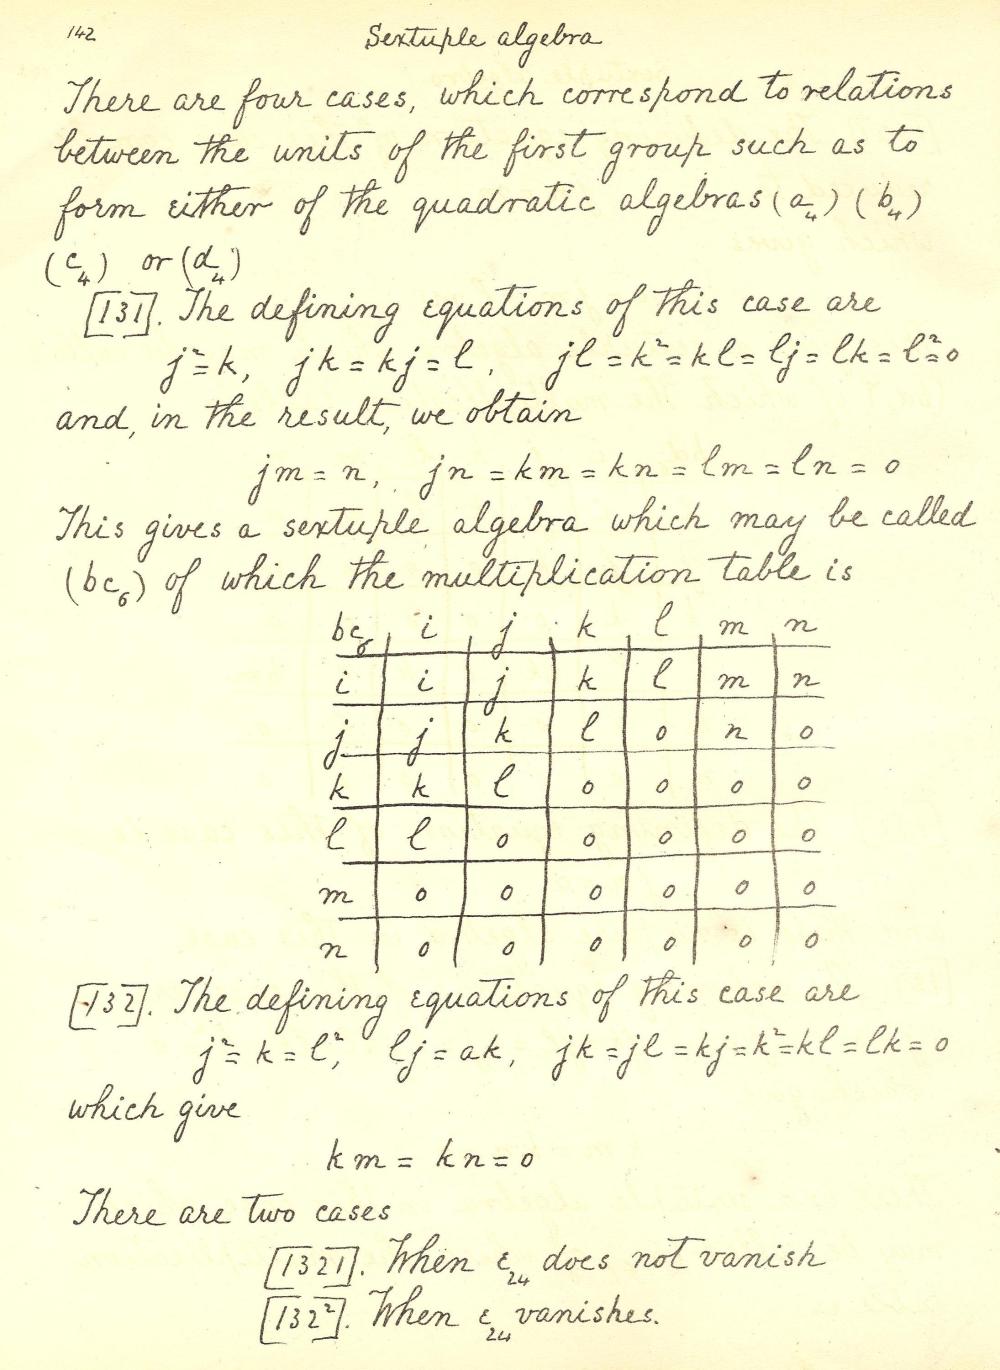 142 Sextuple algebra
There are four cases, which correspond to relations
between the units of the first group such as to
form either of the quadratic algebras (a₄) (b₄)
(c₄) or (d₄)
[131]. The defining equations of this case are
j²=k, jk=kj=l, jl=k²=kl=lj=lk=l²=0
and, in the result, we obtain
jm=n, jn=km=kn=lm=ln=0
This gives a sextuple algebra which may be called
(bc₆) of which the multiplication table is
bc₆ i j k l m n
i i j k l m n
j j k l 0 n 0
k k l 0 0 0 0
l l 0 0 0 0 0
m 0 0 0 0 0 0
n 0 0 0 0 0 0
[132]. The defining equations of this case are
j²=k=l², lj=ak, jk=jl=kj=k²=kl=lk=0
which give
km=kn=0
There are two cases
[1321]. When ε₂₄ does not vanish
[132²]. When ε₂₄ vanishes.